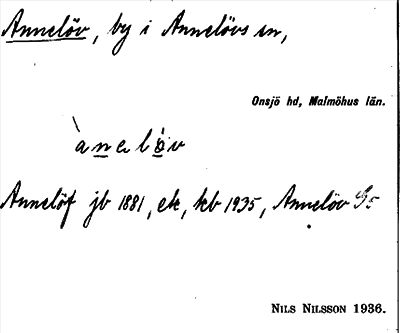 Annelöv, by i Annelövs sn,
Onsjö hd, Malmöhus län.
àneløv
Annelöf jb 1881, ek, kb 1935, Annelöv
NILS NILSSON 1936.